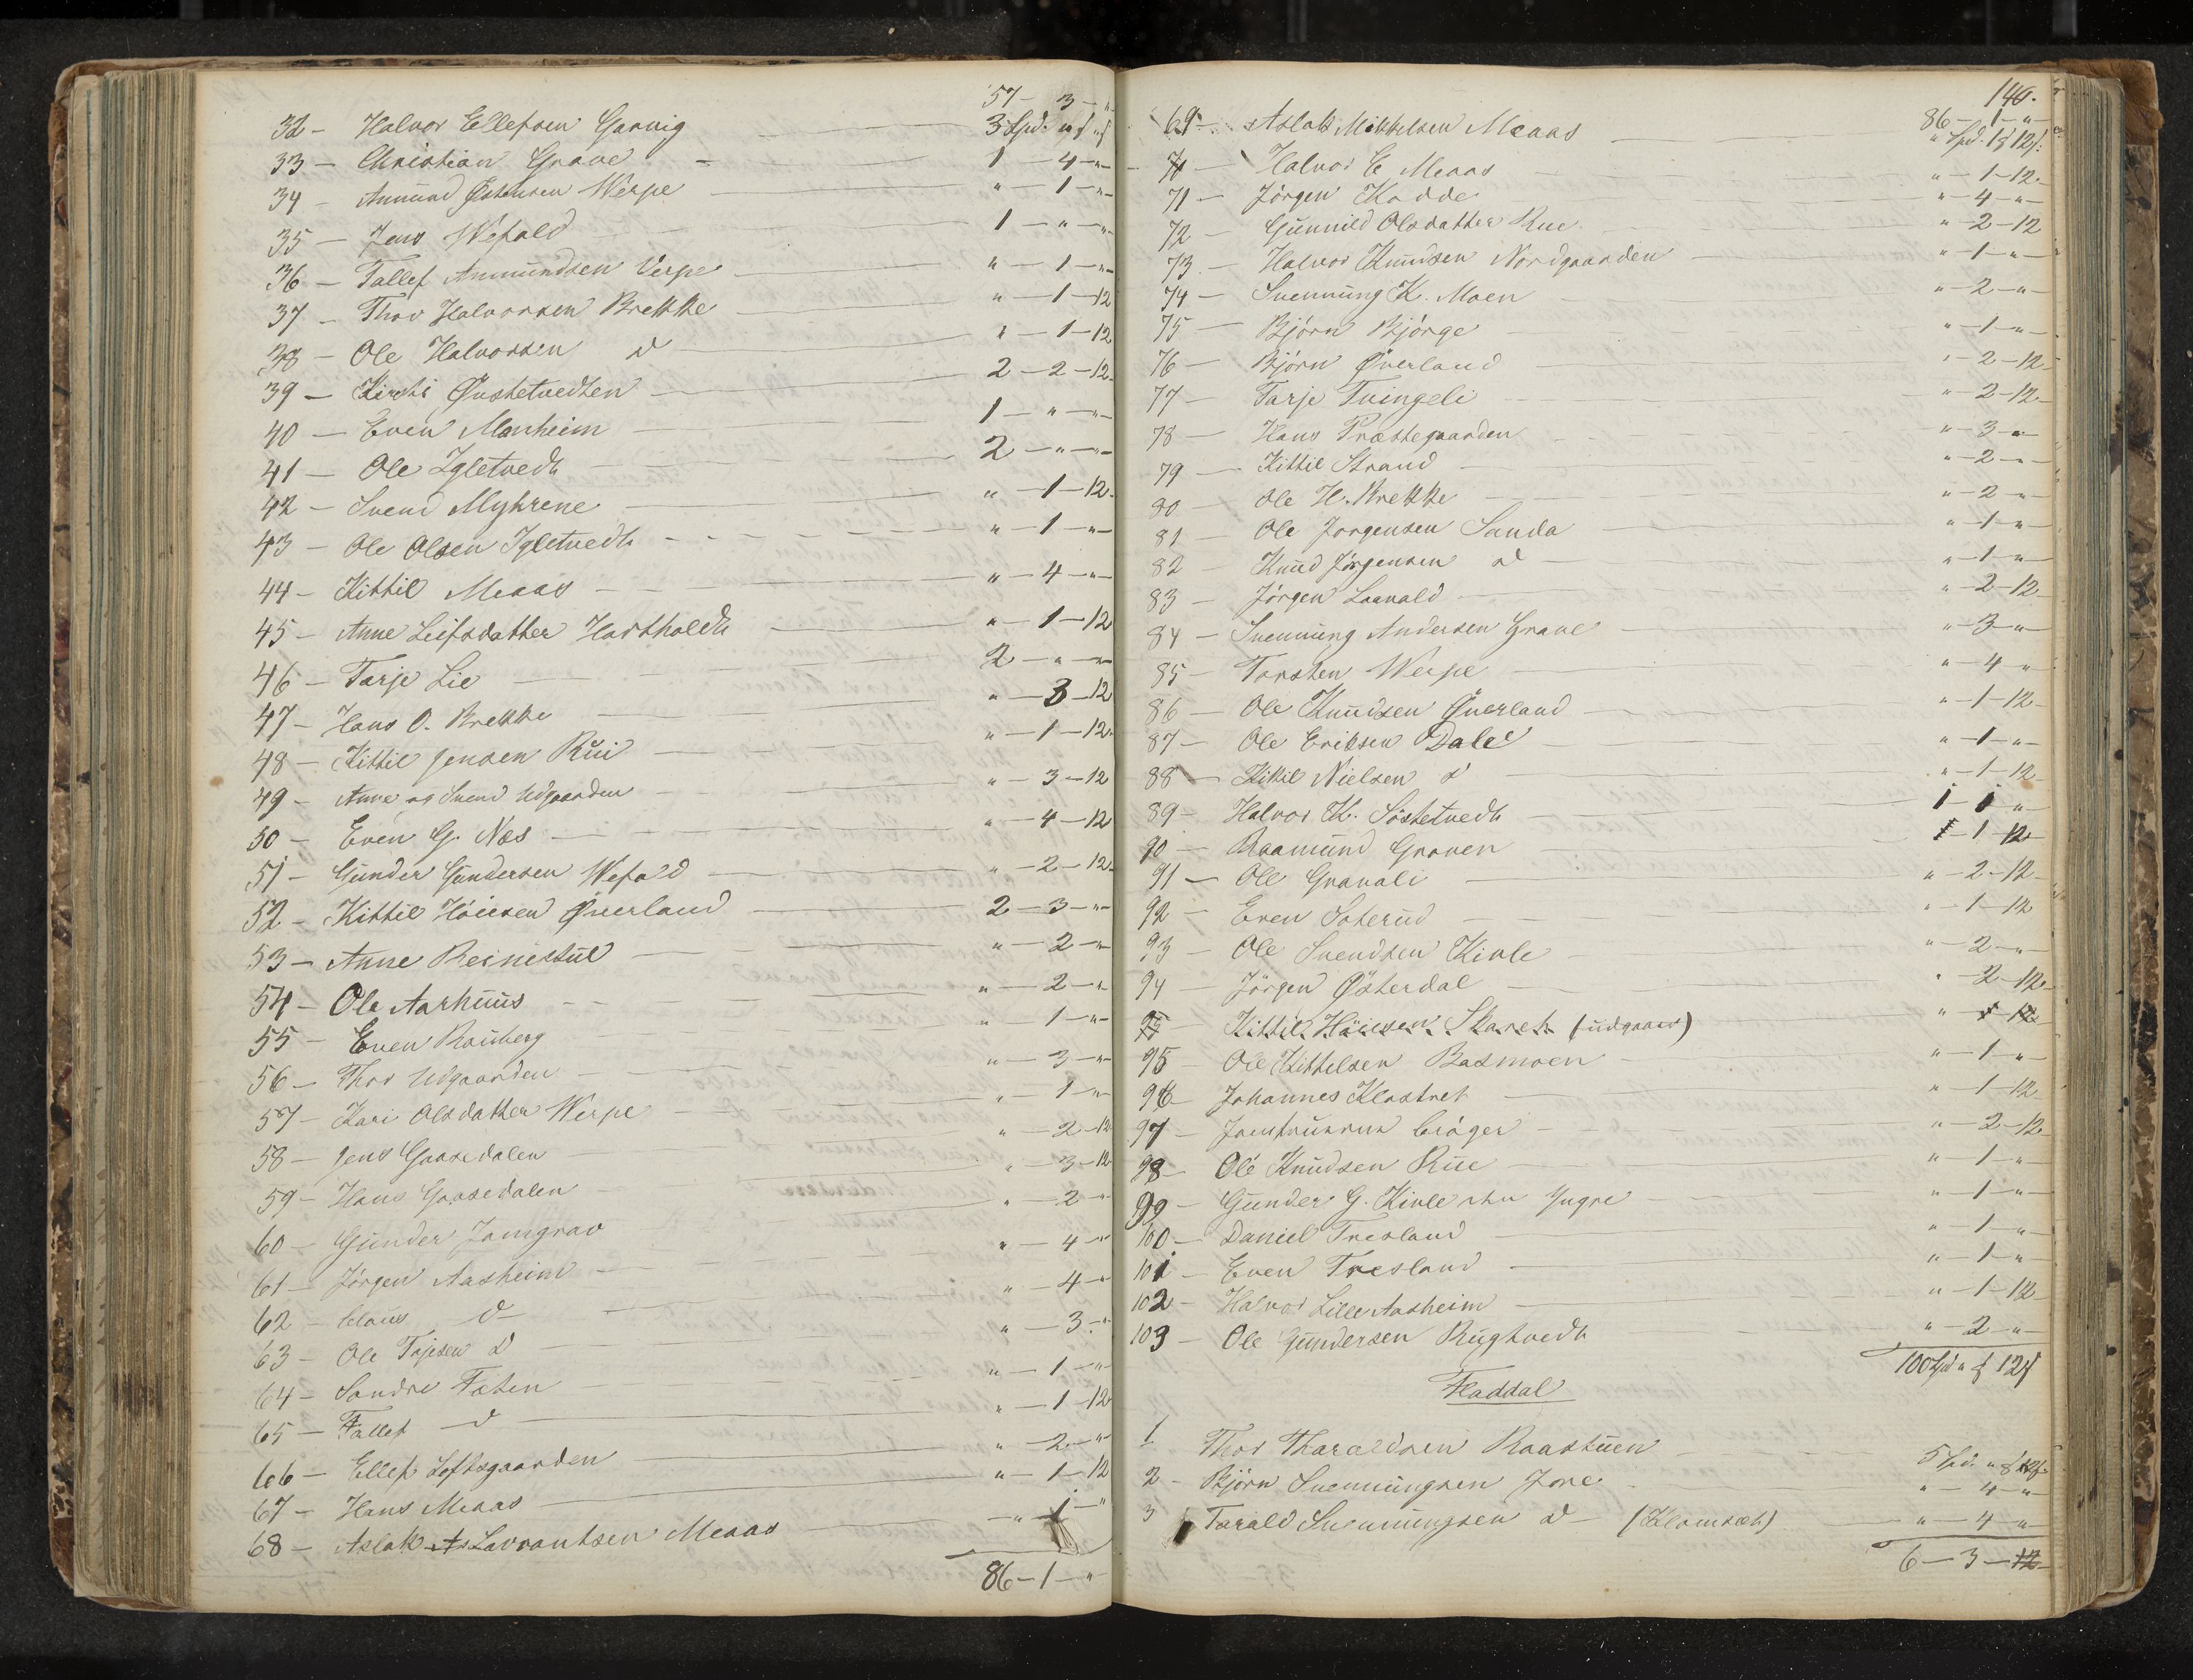 57 - 3 - "
32 - Halvor Ellefsen Garvig 3 Spd. " ₰ " β
33 - Christian Grave 1 - 4 - "
34 - Anmund Østensen Werpe " - 1 - "
35 - Jens Wefald 1 - " - "
36 - Tallef Anmundsen Verpe " - 1 - "
37 - Thor Halvorsen Brekke " - 1 - 12
38 - Ole Halvorsen d " - 1 - 12
39 - Kirsti Øvstetvedten 2 - 2 - 12
40 - Even Manheim 1 - " - "
41 - Ole Igletvedt 2 - " - "
42 - Svend Myhrene " - 1 - 12
43 - Ole Olsen Igletvedt " - 1 - "
44 - Kittil Meaas " - 4 - "
45 - Anne Leifsdatter Hartholdt " - 1 - 12
46 - Tarje Lie 2 - " - "
47 - Hans O. Brekke " - 3 - 12
48 - Kittil Jensen Rui " - 1 - 12
49 - Anne og Svend Udgaarden " - 3 - 12
50 - Even G. Næs " - 4 - 12
51 - Gunder Gundersen Wefald " - 2 - 12
52 - Kittil Høiesen Øverland 2 - 3 - "
53 - Anne Reinestul " - 2 - "
54 - Ole Aarhuus " - 2 - "
55 - Even Rouberg " - 1 - "
56 - Thor Udgaarden " - 3 - "
57 - Kari Olsdatter Werpe " - 1 - "
58 - Jens Gaasedalen " - 2 - 12
59 - Hans Gaasedalen " - 3 - 12
60 - Gunder Jamgrav " - 2 - "
61 - Jørgen Aasheim " - 4 - "
62 - Claus d " - 4 - "
63 - Ole Tajesen d " - 3 - "
64 - Sondre Faten " - 1 - "
65 - Tallef d " - 1 - 12
66 - Ellef Loftsgaarden " - 2 - "
67 - Hans Meaas " - 1 - 12
68 - Aslak Lavrantsen Meaas " - 1 - "
86 - 1 - "
140.
86 - 1 - "
69 - Aslak Mikkelsen Meaas " Spd. 1 ₰ 12 β
70 - Halvor E Meaas " - 1 - 12
71 - Jørgen Kadde " - 4 - "
72 - Gunnild Olsdatter Rue " - 2 - 12
73 - Halvor Knudsen Nordgaarden " - 1 - "
74 - Svennung K. Moen " - 2 - "
75 - Bjørn Bjørge " - 1 - "
76 - Bjørn Øverland " - 2 - 12
77 - Tarje Tvingeli " - 2 - 12
78 - Hans Præstegaarden " - 3 - "
79 - Kittil Strand " - 2 - "
80 - Ole H. Brekke " - 2 - "
81 - Ole Jørgensen Sanda " - 1 - "
82 - Knud Jørgensen d " - 1 - "
83 - Jørgen Laavald " - 2 - 12
84 - Svennung Andersen Grave " - 3 - "
85 - Torsten Werpe " - 4 - "
86 - Ole Knudsen Øverland " - 1 - 12
87 - Ole Eriksen Dale " - 1 - "
88 - Kittil Nielsen d " - 1 - 12
89 - Halvor K. Søstetvedt 1 - 1 - "
90 - Raamund Graven 1 - 1 - 12
91 - Ole Gravali " - 2 - 12
92 - Even Soterud " - 1 - 12
93 - Ole Svendsen Kivle " - 2 - "
94 - Jørgen Østerdal " - 2 - 12
95 - Kittil Høiesen Skaret (udgaaer) " - 1 - 12
95 - Ole Kittelsen Basmoen " - 1 - "
96 - Johannes Klostret " - 1 - 12
97 - Cröger " - 2 - 12
98 - Ole Knudsen Rue " - 1 - "
99 - Gunder G. Kivle Yngre " - 1 - "
100 - Daniel Tresland " - 1 - "
101 - Even Tresland " - 1 - "
102 - Halvor Lille Aasheim " - 1 - 12
103 - Ole Gundersen Rugtvedt " - 2 - "
100 Spd " ₰ 12 β
Fladdal
1 Thor Tharaldsen Raastuen 5 Spd. " ₰ 12 β
2 - Bjørn Svennungsen Jore " - 4 - "
3 Tarald Svennungsen d (Klomset) " - 4 - "
6 - 3 - 12